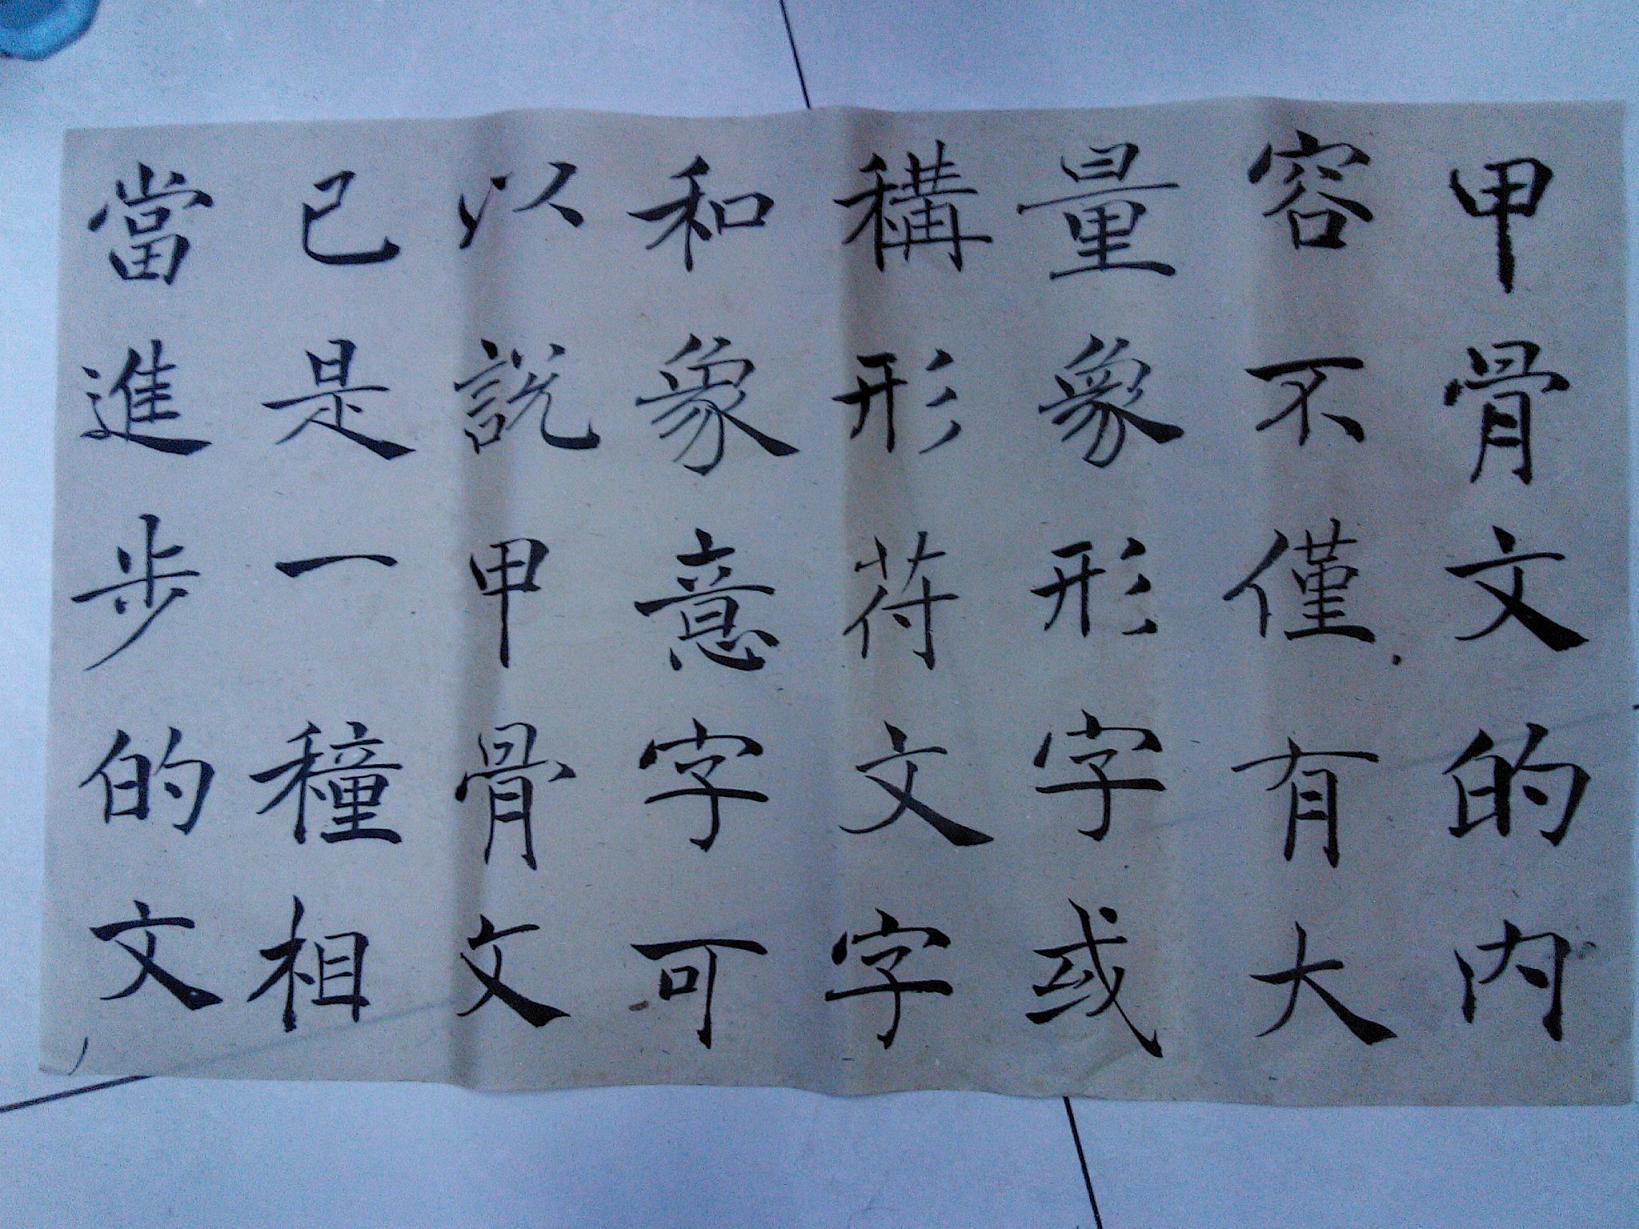 甲骨文的内
容不僅有大
量象形字或
稱形符文字
和象意字可
以説甲骨文
已是一種相
當進步的文